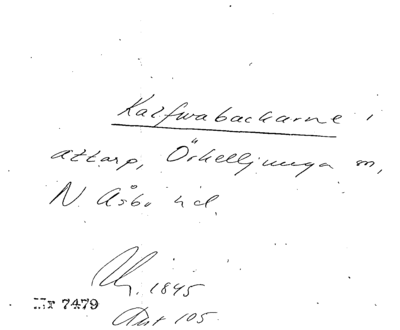 Kalfwabackarne i
attarp, Örkelljunga m,
N Åsbo hd.
1845
Nr 7479
Akt 105.